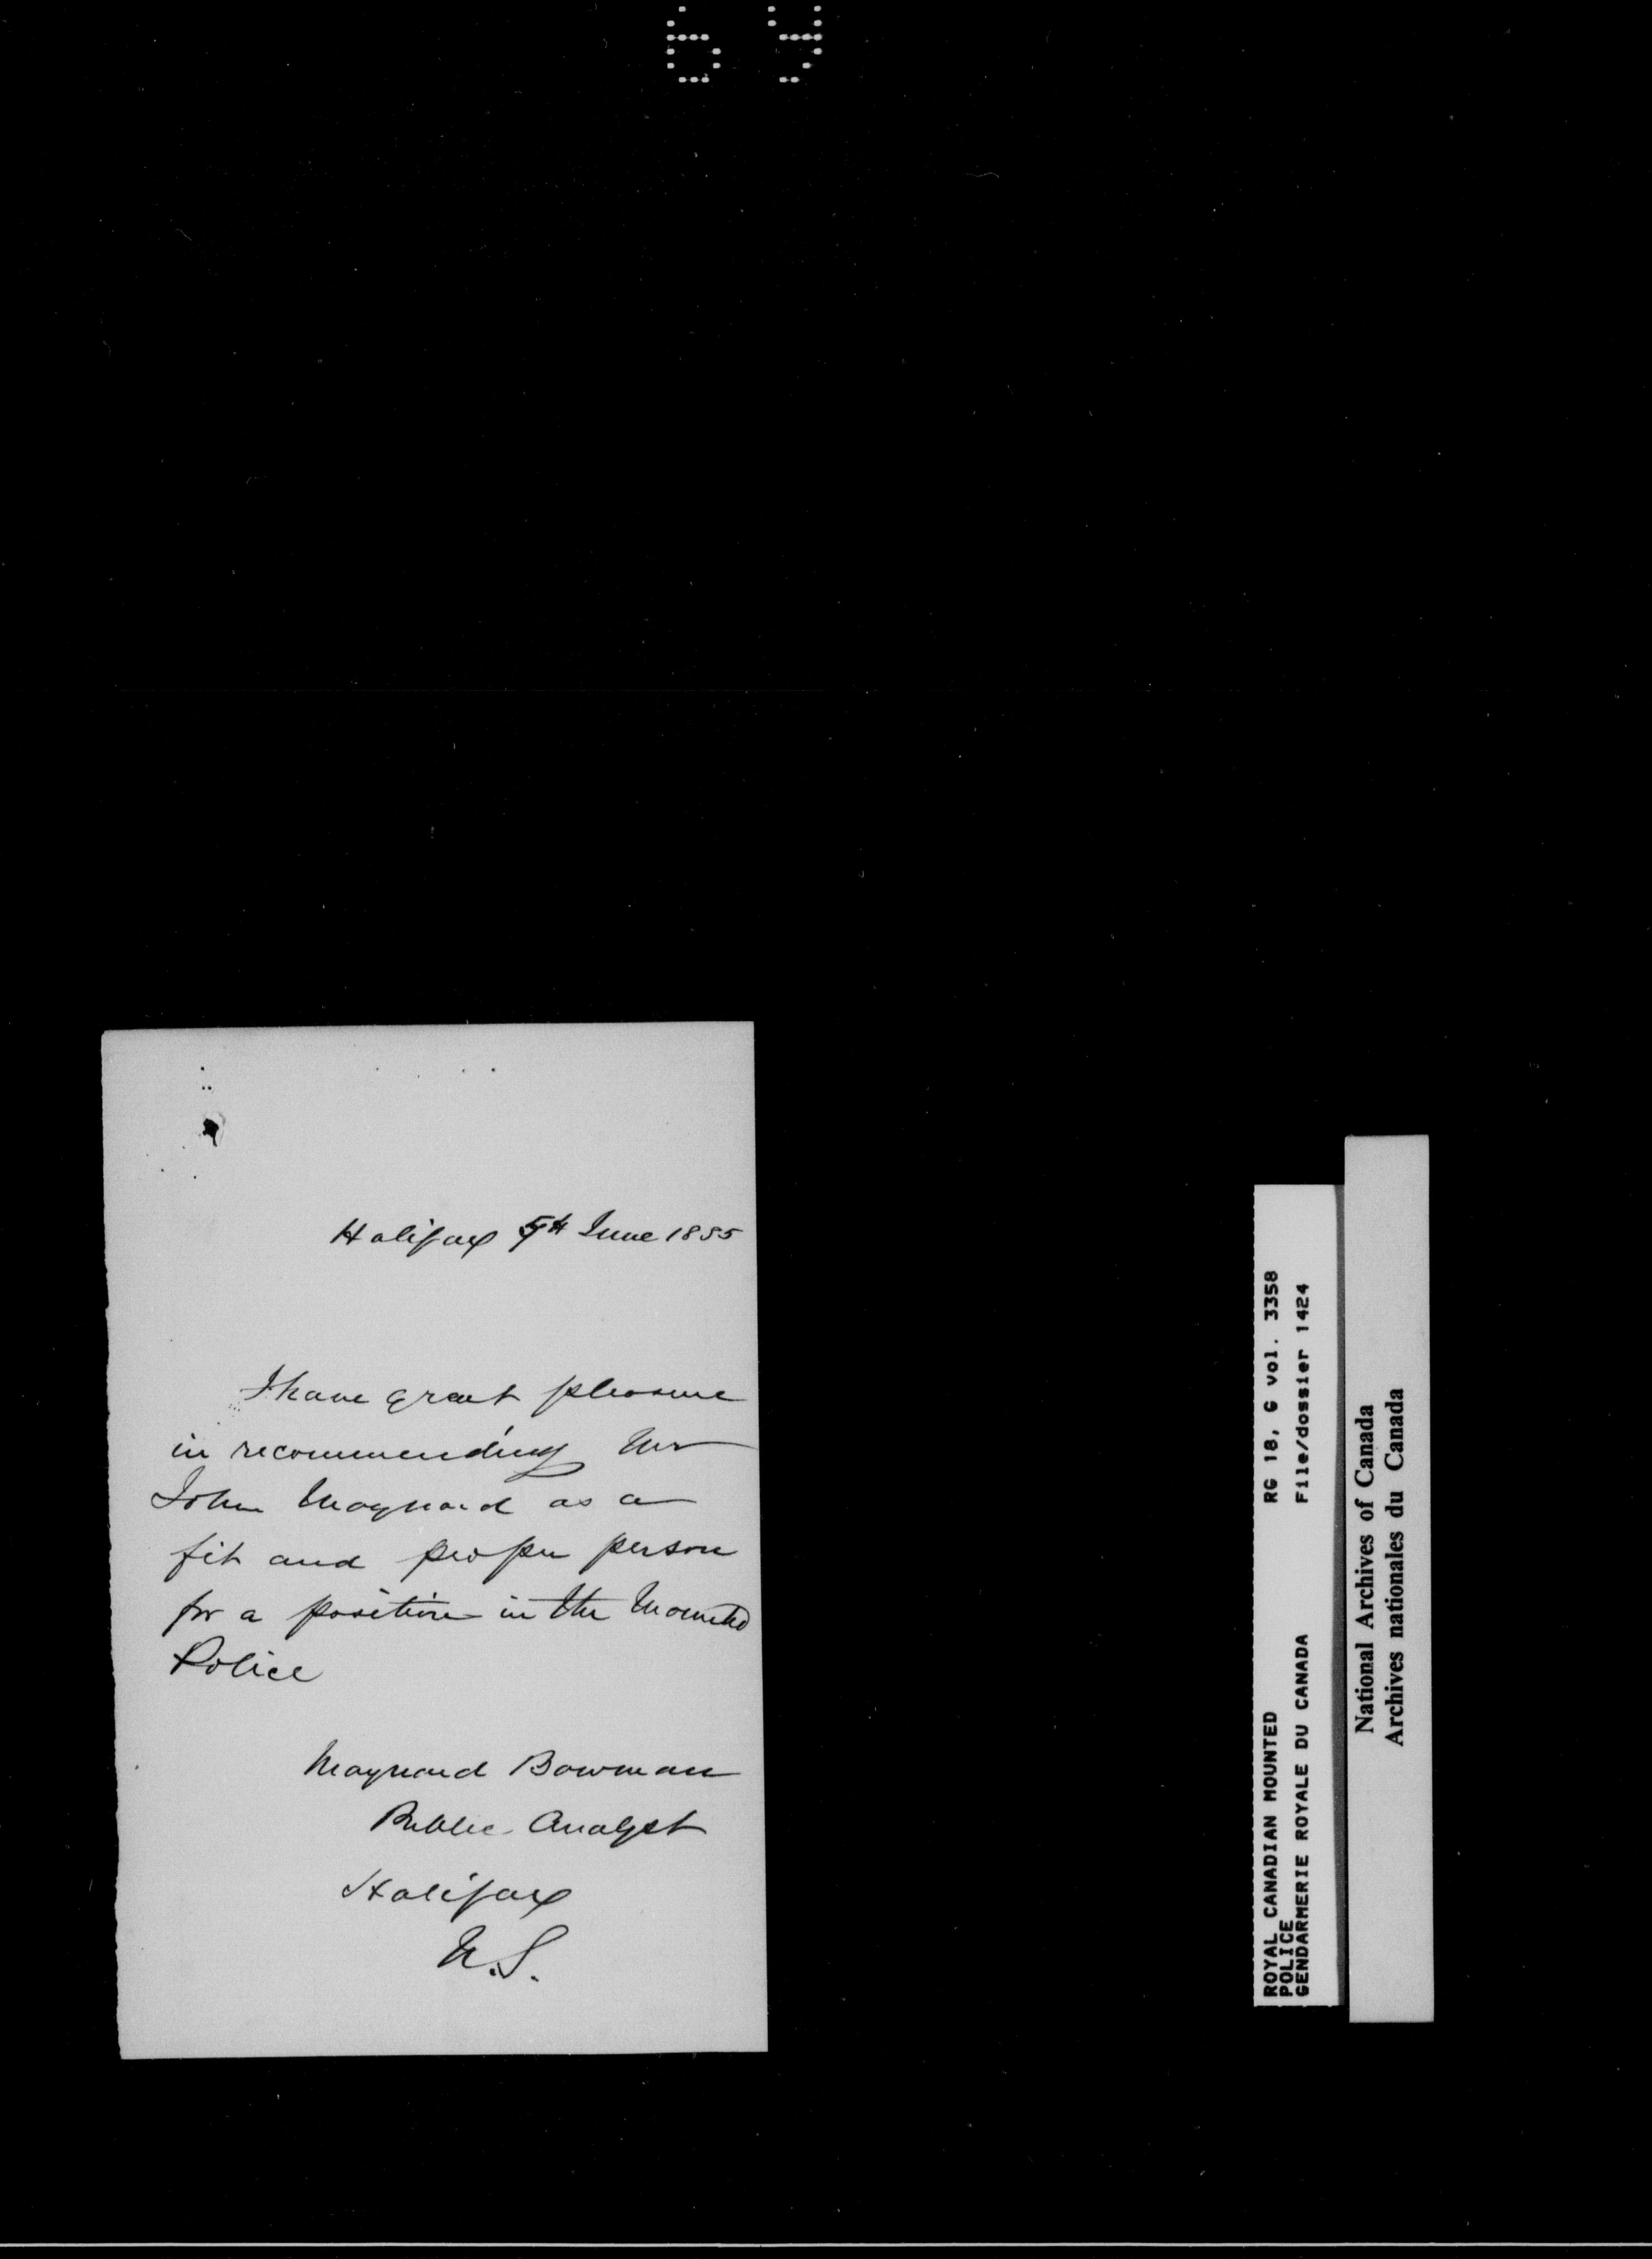 Halifax 5th June 1885
I have great pleasure
in recommending Mr
John Maynard as a
fit and proper person
for a position in the Mounted
Police
Maynard Bowman
Public Analyst
Halifax
N.S.
ROYAL CANADIAN MOUNTED
POLICE
GENDARMERIE ROYALE DU CANADA
RG 18, G vol. 3358
File/dossier 1424
National Archives of Canada
Archives nationales du Canada